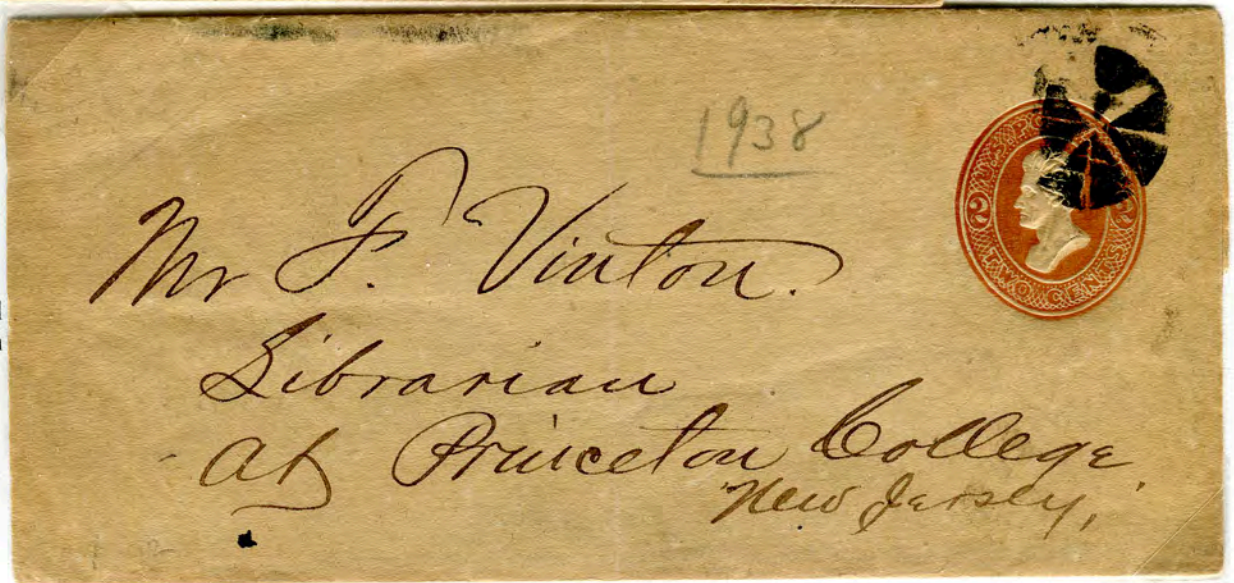 1938
U.S. PO
2 2
TWO CENTS
Mr F. Vinton.
Librarian
at Princeton College
New Jersey,